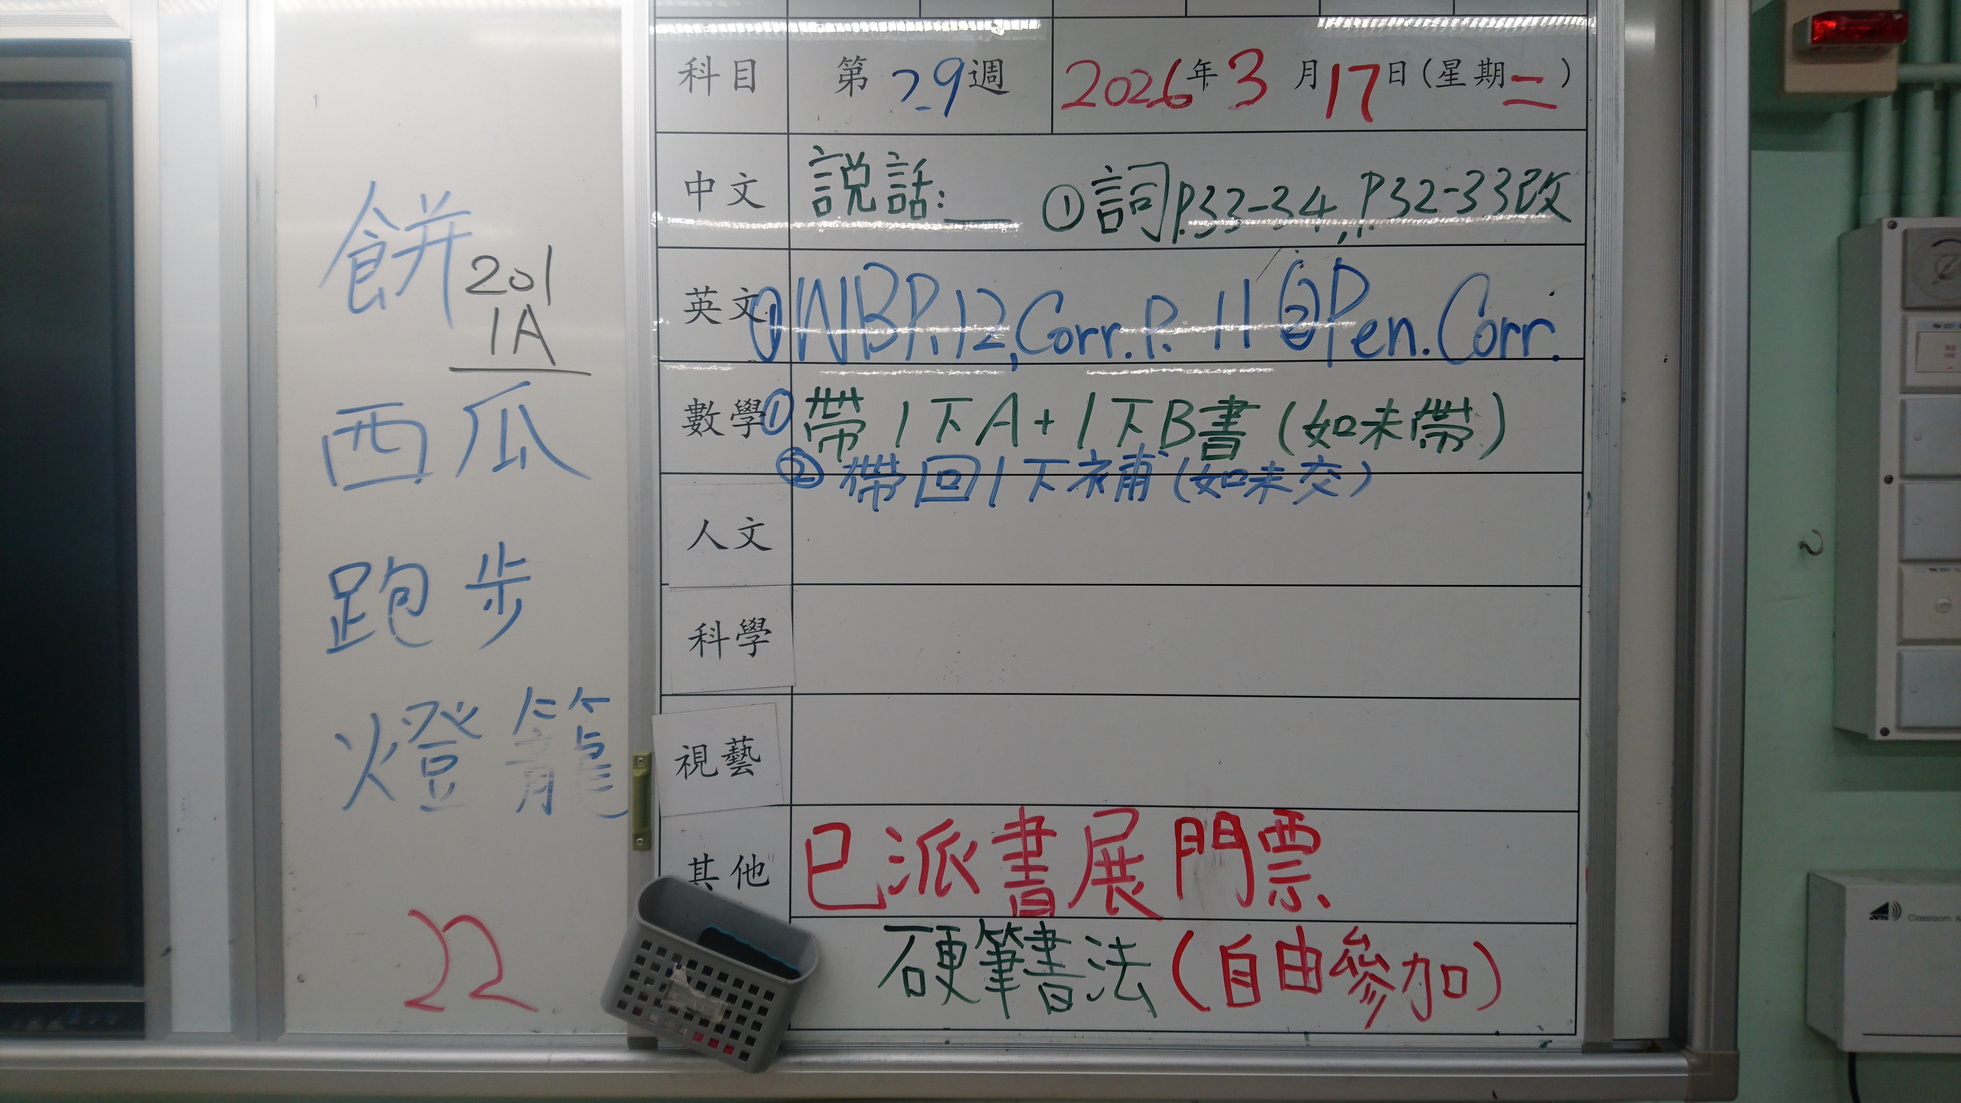 餅
201
1A
西瓜
跑步
燈籠
22
科目 第29週 2026年3月17日(星期二)
中文 説話:__ ①詞P.33-34, P.32-33改
英文 ①WB P.12, Corr. P. 11 ②Pen. Corr.
數學 ①帶1下A+1下B書(如未帶)
②帶回1下補(如未交)
人文
科學
視藝
其他 已派書展門票
硬筆書法(自由參加)
Classroom